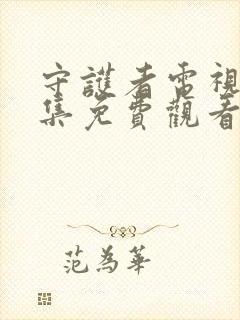 守護者電視
集免費觀看
范為華